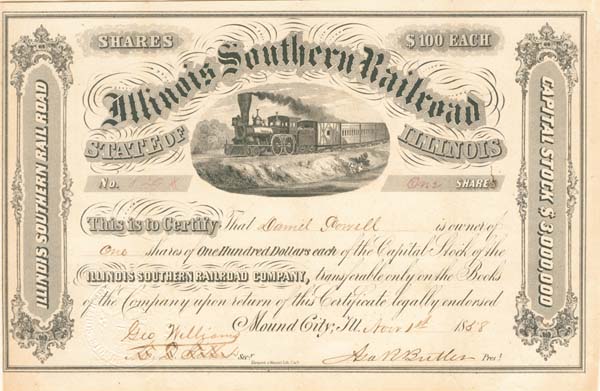 SHARES $100 EACH
Illinois Southern Railroad
STATE OF ILLINOIS
No. One SHARES
ILLINOIS SOUTHERN RAILROAD
CAPITAL STOCK $3,000,000
This is to Certify That Daniel Powell is owner of
One shares of One Hundred Dollars each of the Capital Stock of the
ILLINOIS SOUTHERN RAILROAD COMPANY, transferable only on the Books
of the Company upon return of this Certificate legally endorsed
Mound City, Ill. Novr 1st 1858
Geo Williams
Secy. Butler Pres!